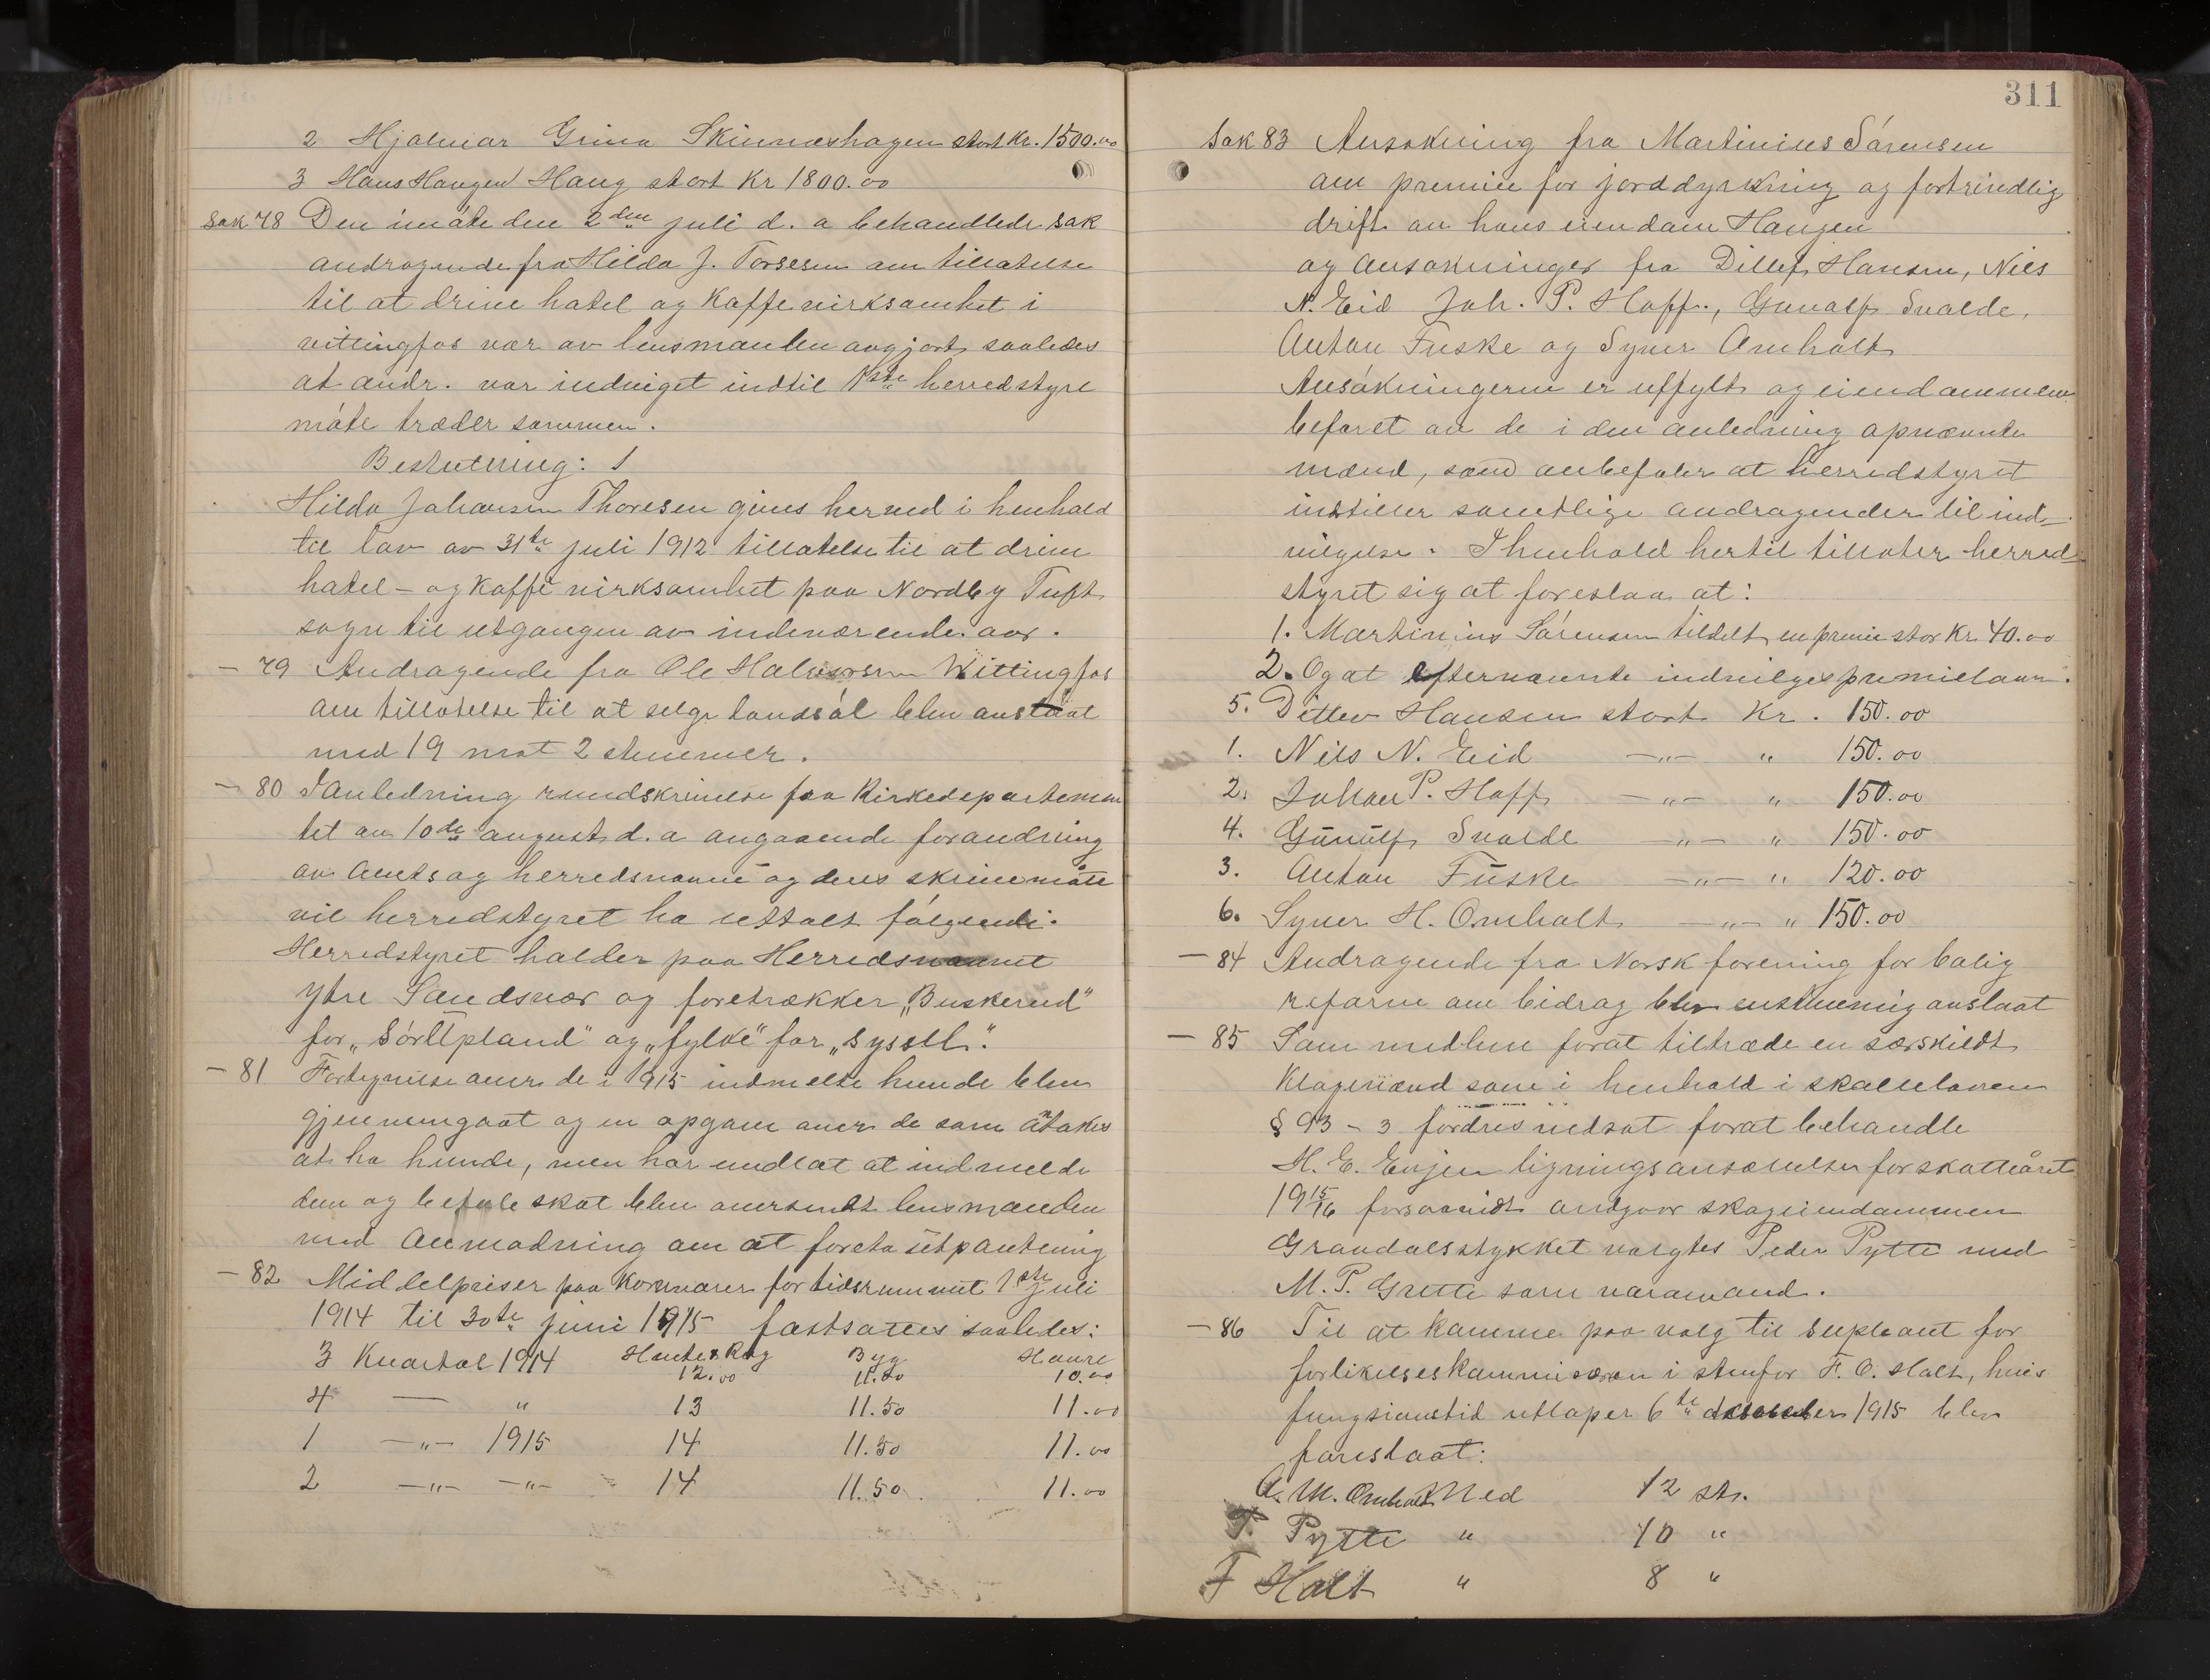 2 Hjalmar Grina Skinnæshagen stort Kr. 1500.00
3 Hans Haugen Haug stort Kr 1800.00
Sak 78 Den i møte den 2den juli d. a behandlede sak
andragende fra Hilda J. Torsesen om tillatelse
til at drive hotel og Kaffevirksomhet i
vittingfos var av lensmanden avgjort saaledes
at andr. var indvilget indtil 1ste herredstyre
møte træder sammen.
Beslutning: 1
Hilda Johansen Thoresen gives herved i henhold
til lov av 31te juli 1912 tillatelse til at drive
hotel - og Kaffe virksomhet paa Nordby Tuft
sogn til utgangen av indeværende aar.
— 79 Andragende fra Ole Halvorsen Wittingfos
om tillatelse til at selge landsøl blev avslaat
med 19 mot 2 stemmer.
— 80 I Anledning rundskrivelse fra Kirkedepartemen
tet av 10de august d. a angaaende forandring
av Amts og herredsnavne og deres skrivemåte
vil herredstyret ha uttalt følgende:
Herredstyret holder paa Herredsnavnet
Ytre Sandsvær og foretrækker „Buskerud"
for „Sørupland" og „fylke" for „syssel".
— 81 Fortegnelse over de i 1915 indmelte hunde blev
gjennemgaat og en opgave over de som antakes
at ha hunde, men har undlat at indmelde
dem og betale skat blev oversendt lensmanden
med Anmodning om at foreta utpantning
— 82 Middelpriser paa Kornvarer for tidsrummet 1ste juli
1914 til 30te juni 1915 fastsattes saaledes:
3 Kvartal 1914 Hvete & Rug 12.00 Byg 11.50 Havre 10.00
4 — " 13 11.50 11.00
1 —"— 1915 14 11.50 11.00
2 —"— —"— 14 11.50 11.00
311
Sak 83 Ansøkning fra Martinius Sørensen
om premie for jorddyrkning og fortrindlig
drift av hans eiendom Haugen
og Ansøkninger fra Ditlef Hansen, Nils
N. Eid Joh. P. Hoff., Gunulf Svalde,
Anton Fuske og Syver Omholt
Ansøkningerne er utfylt og eiendommene
befaret av de i den anledning opnævnte
mænd, som anbefaler at herredstyret
instiller samtlige andragender til ind-
vilgelse. I henhold hertil tillater herred-
styret sig at foreslaa at:
1. Martinius Sørensen tildelt en premie stor Kr 40.00
2. Og at efternævnte indvilges premielaan.
5. Ditlev Hansen stort Kr. 150.00
1. Nils N. Eid —"— " 150.00
2. Johan P. Hoff —"— " 150.00
4. Gunulf Svalde —"— " 150.00
3. Anton Fuske —"— " 120.00
6. Syver H. Omholt —"— " 150.00
— 84 Andragende fra Norsk forening for bolig
reform om bidrag blev enstemmig avslaat
— 85 Som medlem forat tiltræde en særskildt
Klagenævnd som i henhold i skatteloven
§ 93 - 3 fordres nedsat forat behandle
H. E. Evjen ligningsansættelse for skatteåret
1915/16 forsaavidt andgaar skogeiendommen
Grandalsstykket valgtes Peder Pytte med
M. P. Grette som varamand.
— 86 Til at komme paa valg til supleant for
forlikelseskommisæren i stenfor F. O. Holt, hvis
fungsionstid utløper 6te december 1915 blev
foreslaat:
A. M. Omholt Med 12 st.
P. Pytte " 10 "
F Holt " 8 "